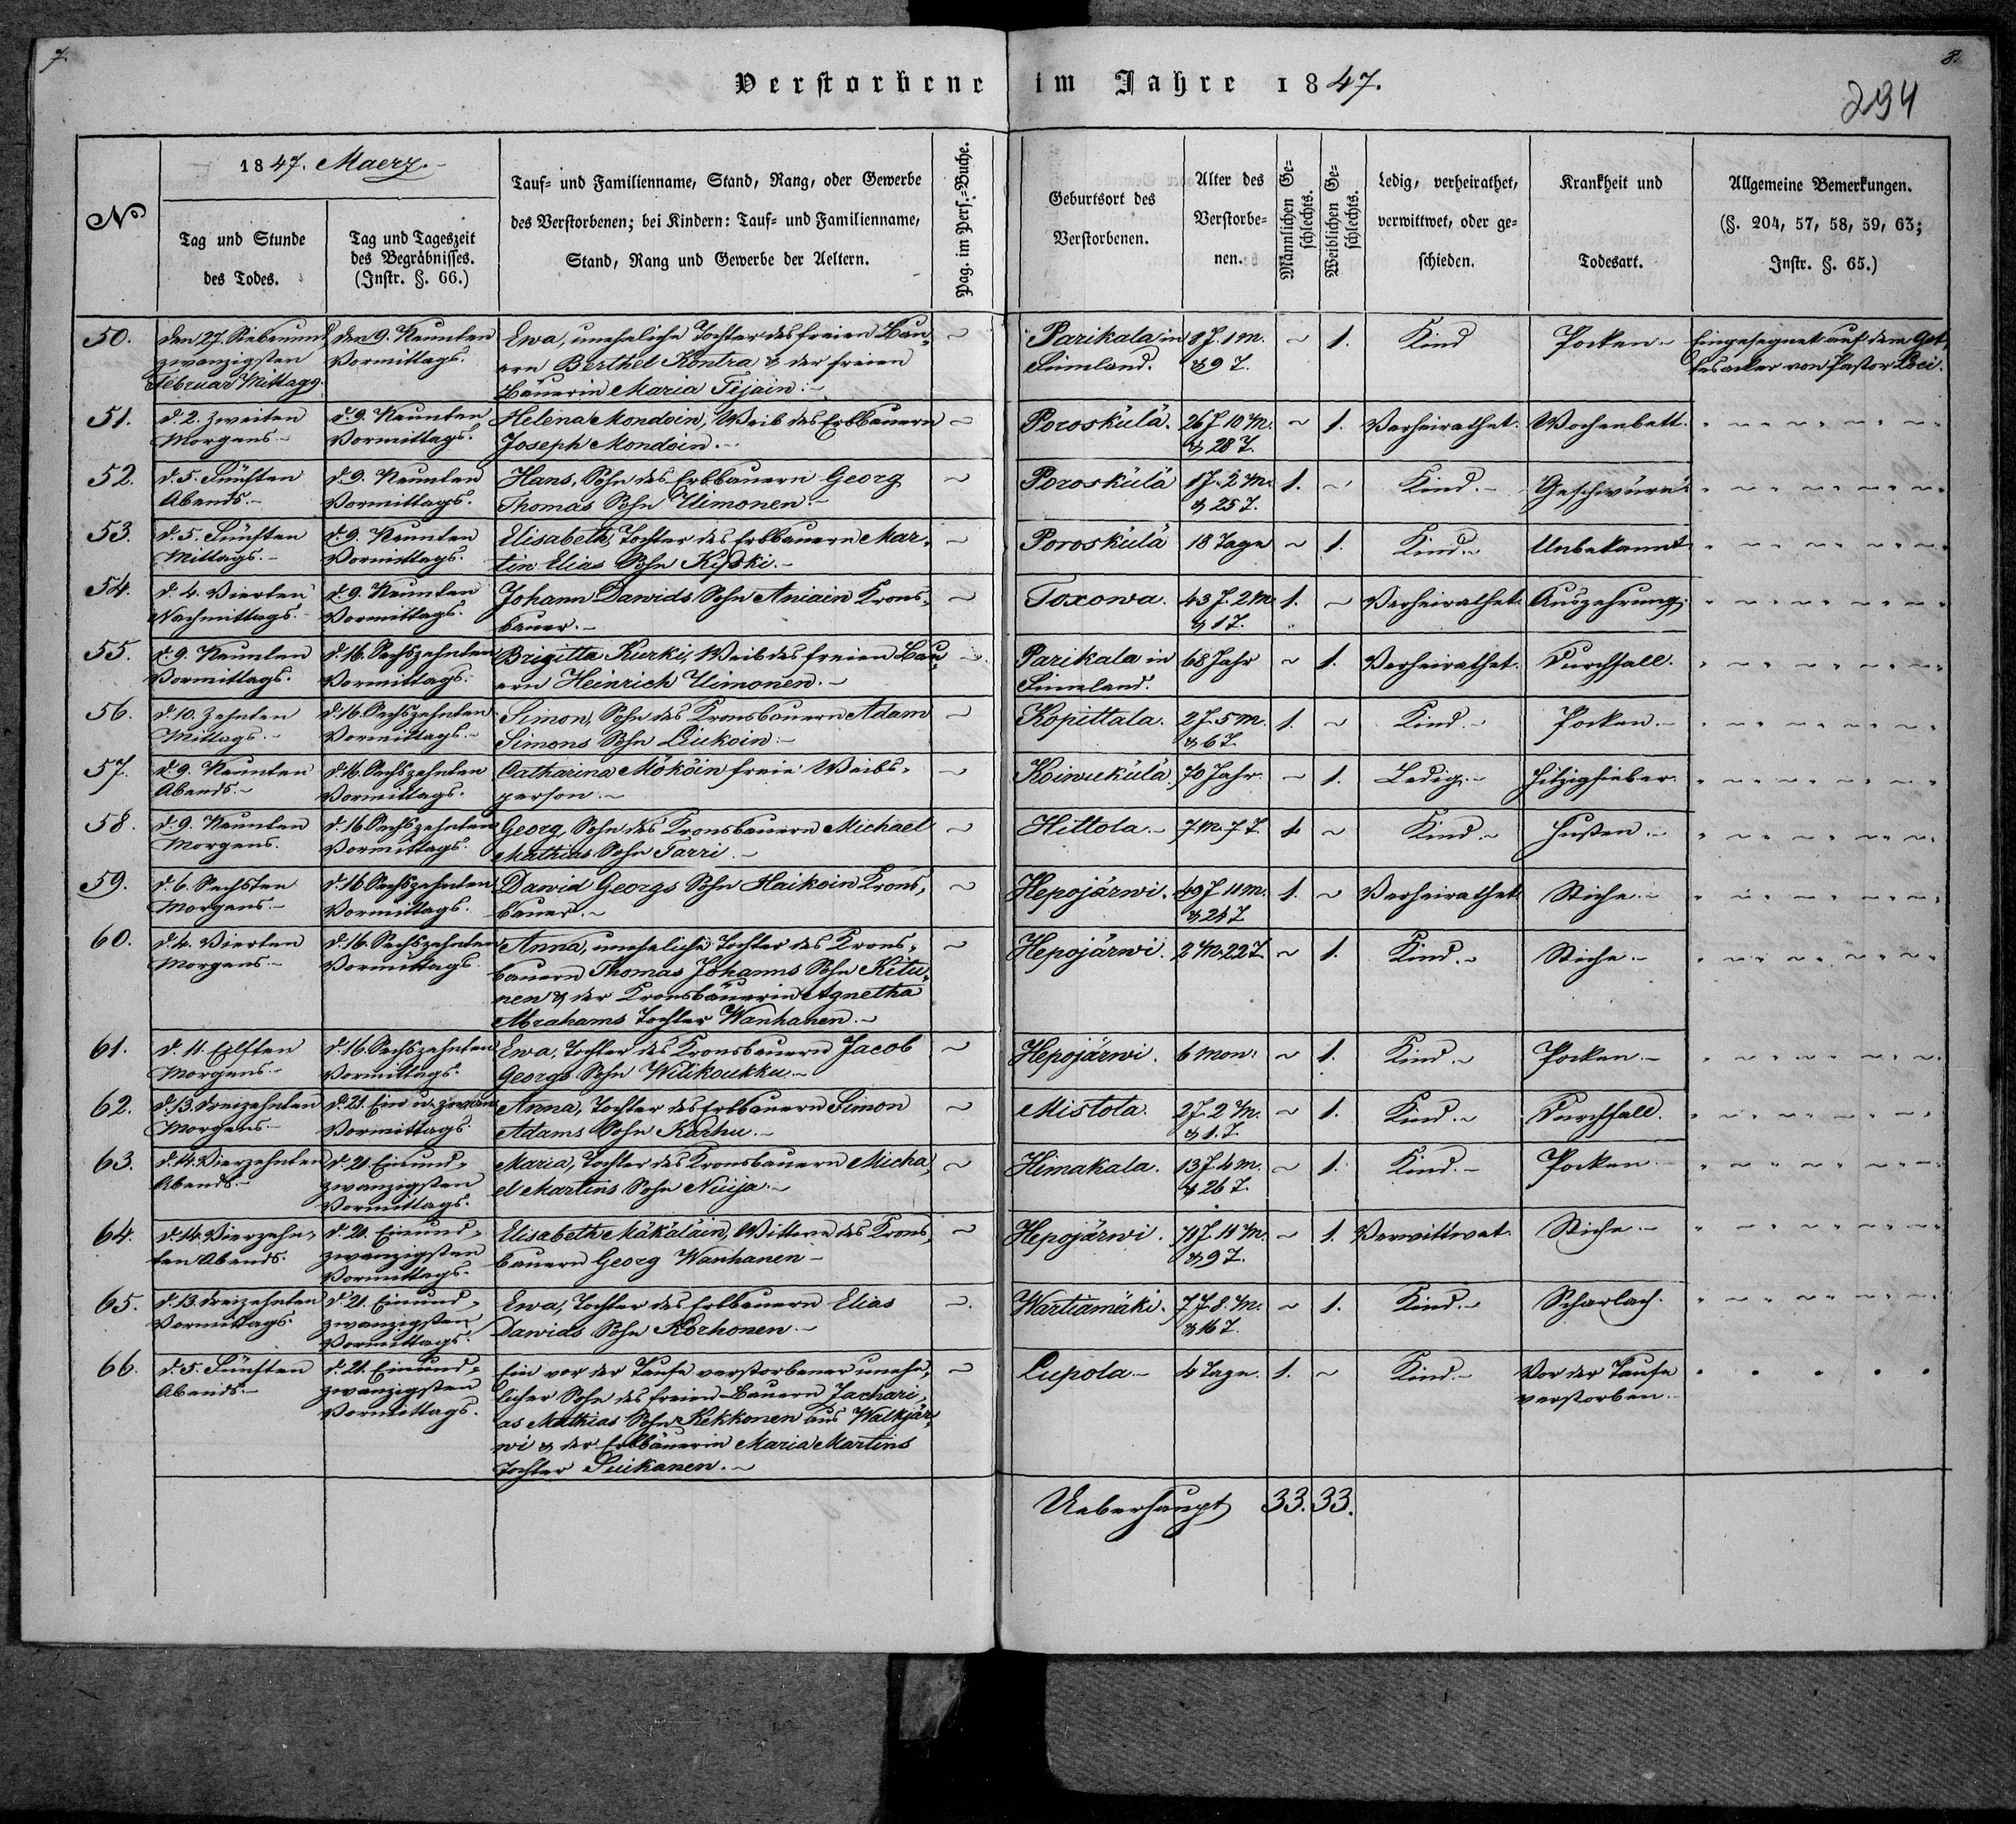 7.
8.
Verstorbene im Jahre 1847.
294
No
1847. Maerz.
Tag und Stunde
des Todes.
Tag und Tageszeit
des Begräbnisses.
(Instr. §. 66.)
Tauf- und Familienname, Stand, Rang, oder Gewerbe
des Verstorbenen; bei Kindern: Tauf- und Familienname,
Stand, Rang und Gewerbe der Aeltern.
Pag. im Pers.-Buche.
Geburtsort des
Verstorbenen.
Alter des
Verstorbe-
nen.
Männlichen Ge-
schlechts.
Weiblichen Ge-
schlechts.
Ledig, verheirathet,
verwittwet, oder ge-
schieden.
Krankheit und
Todesart.
Allgemeine Bemerkungen.
(§. 204, 57, 58, 59, 63;
Instr. §. 65.)
50.
den 27. Siebenund
zwanzigsten
Februar Mittags.
den 9. Neunten
Vormittags.
Ewa, uneheliche Tochter des freien Bau-
ern Berthel Kontra & der freien
Bäuerin Maria Tijäin.
Parikala in
Finnland.
8 J. 1 M.
& 9 T.
1.
Kind
Pocken
Eingesegnet auf dem Got-
tesacker von Pastor
51.
d. 2. Zweiten
Morgens.
d. 9. Neunten
Vormittags.
Helena Mondoin, Weib des Erbbauern
Joseph Mondoin.
Poroskülä.
26 J. 10 M.
& 28 T.
1.
Verheirathet.
Wochenbett.
52.
d. 5. Fünften
Abends.
d. 9. Neunten
Vormittags.
Hans, Sohn des Erbbauern Georg
Thomas Sohn Uimonen.
Poroskülä
1 J. 2 M.
& 25 T.
1.
Kind.
Geschwüre.
53.
d. 5. Fünften
Mittags.
d. 9. Neunten
Vormittags.
Elisabeth, Tochter des Erbbauern Mar-
tin Elias Sohn Kyski.
Poroskülä
18 Tage
1.
Kind.
Unbekannt
54.
d. 4. Vierten
Nachmittags.
d. 9. Neunten
Vormittags.
Johann Dawids Sohn Aniain Krons-
bauer.
Toxowa.
43 J. 2 M.
& 1 T.
1.
Verheirathet.
Auszehrung.
55.
d. 9. Neunten
Vormittags.
d. 16. Sechszehnten
Vormittags.
Brigitta Kurki, Weib des freien Bau-
ern Heinrich Uimonen.
Parikala in
Finnland.
68 Jahr
1.
Verheirathet.
Durchfall.
56.
d. 10. Zehnten
Mittags.
d. 16. Sechszehnten
Vormittags.
Simon, Sohn des Kronsbauern Adam
Simons Sohn Liukoin.
Kopittala.
2 J. 5 M.
& 6 T.
1.
Kind.
Pocken.
57.
d. 9. Neunten
Abends.
d. 16. Sechszehnten
Vormittags.
Catharina Mököin freie Weibs-
person.
Koiwukülä
70 Jahr.
1.
Ledig.
Hitzigfieber.
58.
d. 9. Neunten
Morgens.
d. 16 Sechszehnten
Vormittags.
Georg, Sohn des Kronsbauern Michael
Mathias Sohn Tarri.
Hittola.
7 M. 7 T.
1.
Kind.
Husten.
59.
d. 6. Sechsten
Morgens.
d. 16 Sechszehnten
Vormittags.
Dawid Georgs Sohn Haikoin Krons-
bauer.
Hepojärwi.
49 J. 11 M.
& 24 T.
1.
Verheirathet
Stiche.
60.
d. 4. Vierten
Morgens.
d. 16 Sechszehnten
Vormittags
Anna, uneheliche Tochter des Krons-
bauern Thomas Johanns Sohn Kitu-
nen & der Kronsbäuerin Agnetha
Abrahams Tochter Wanhanen.
Hepojärwi.
2 M. 22 T.
1.
Kind.
Stiche.
61.
d. 11. Eilften
Morgens.
d. 16. Sechszehnten
Vormittags.
Ewa, Tochter des Kronsbauern Jacob
Georgs Sohn Wilikoukku.
Hepojärwi.
6 Mon:
1.
Kind.
Pocken.
62.
d. 13. Dreizehnten
Morgens.
d. 21. Ein u. zwanz
Vormittags
Anna, Tochter des Erbbauern Simon
Adams Sohn Karhu.
Mistola.
2 J. 2 M.
& 1. T.
1.
Kind.
Durchfall.
63.
d. 14. Vierzehnten
Abends.
d. 21. Einund-
zwanzigsten
Vormittags.
Maria, Tochter des Kronsbauern Micha-
el Martins Sohn Nuija.
Himakala.
13 J. 4 M.
& 26 T.
1.
Kind.
Pocken
64.
d. 14. Vierzehn-
ten Abends.
d. 21. Einund-
zwanzigsten
Vormittags.
Elisabeth Mäkäläin, Wittwe des Krons-
bauern Georg Wanhanen
Hepojärwi.
71 J. 11 M.
& 9 T.
1.
Verwittwet.
Stiche.
65.
d. 13. Dreizehnten
Vormittags.
d. 21. Einund-
zwanzigsten
Vormittags.
Ewa, Tochter des Erbbauern Elias
Dawids Sohn Korhonen.
Wartiamäki.
7 J. 8. M.
& 16 T.
1.
Kind.
Scharlach.
66.
d. 5. Fünften
Abends.
d. 21. Einund-
zwanzigsten
Vormittags.
Ein vor der Taufe verstorbener unehe-
licher Sohn des freien Bauern Zachari-
as Mathias Sohn Kekkonen aus Walkjär-
wi & der Erbbäuerin Maria Martins
Tochter Suikanen.
Lupola.
4 Tage.
1.
Kind.
Vor der Taufe
verstorben.
Ueberhaupt 33. 33.